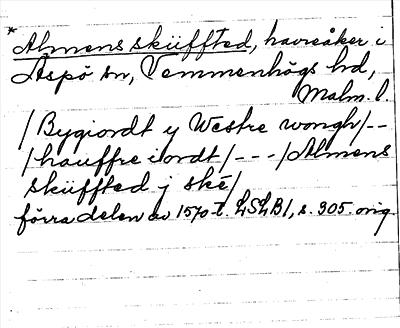 *
Almens skiffted, havreåker i
Äspö sn, Vemmenhögs hd,
Malm. l.
/Bygiordt y Westre wongh/--
/hauffre iordt/---/Almens
skiffted j ske/
förra delen av 1570-t. LSLB1, s. 305. orig.